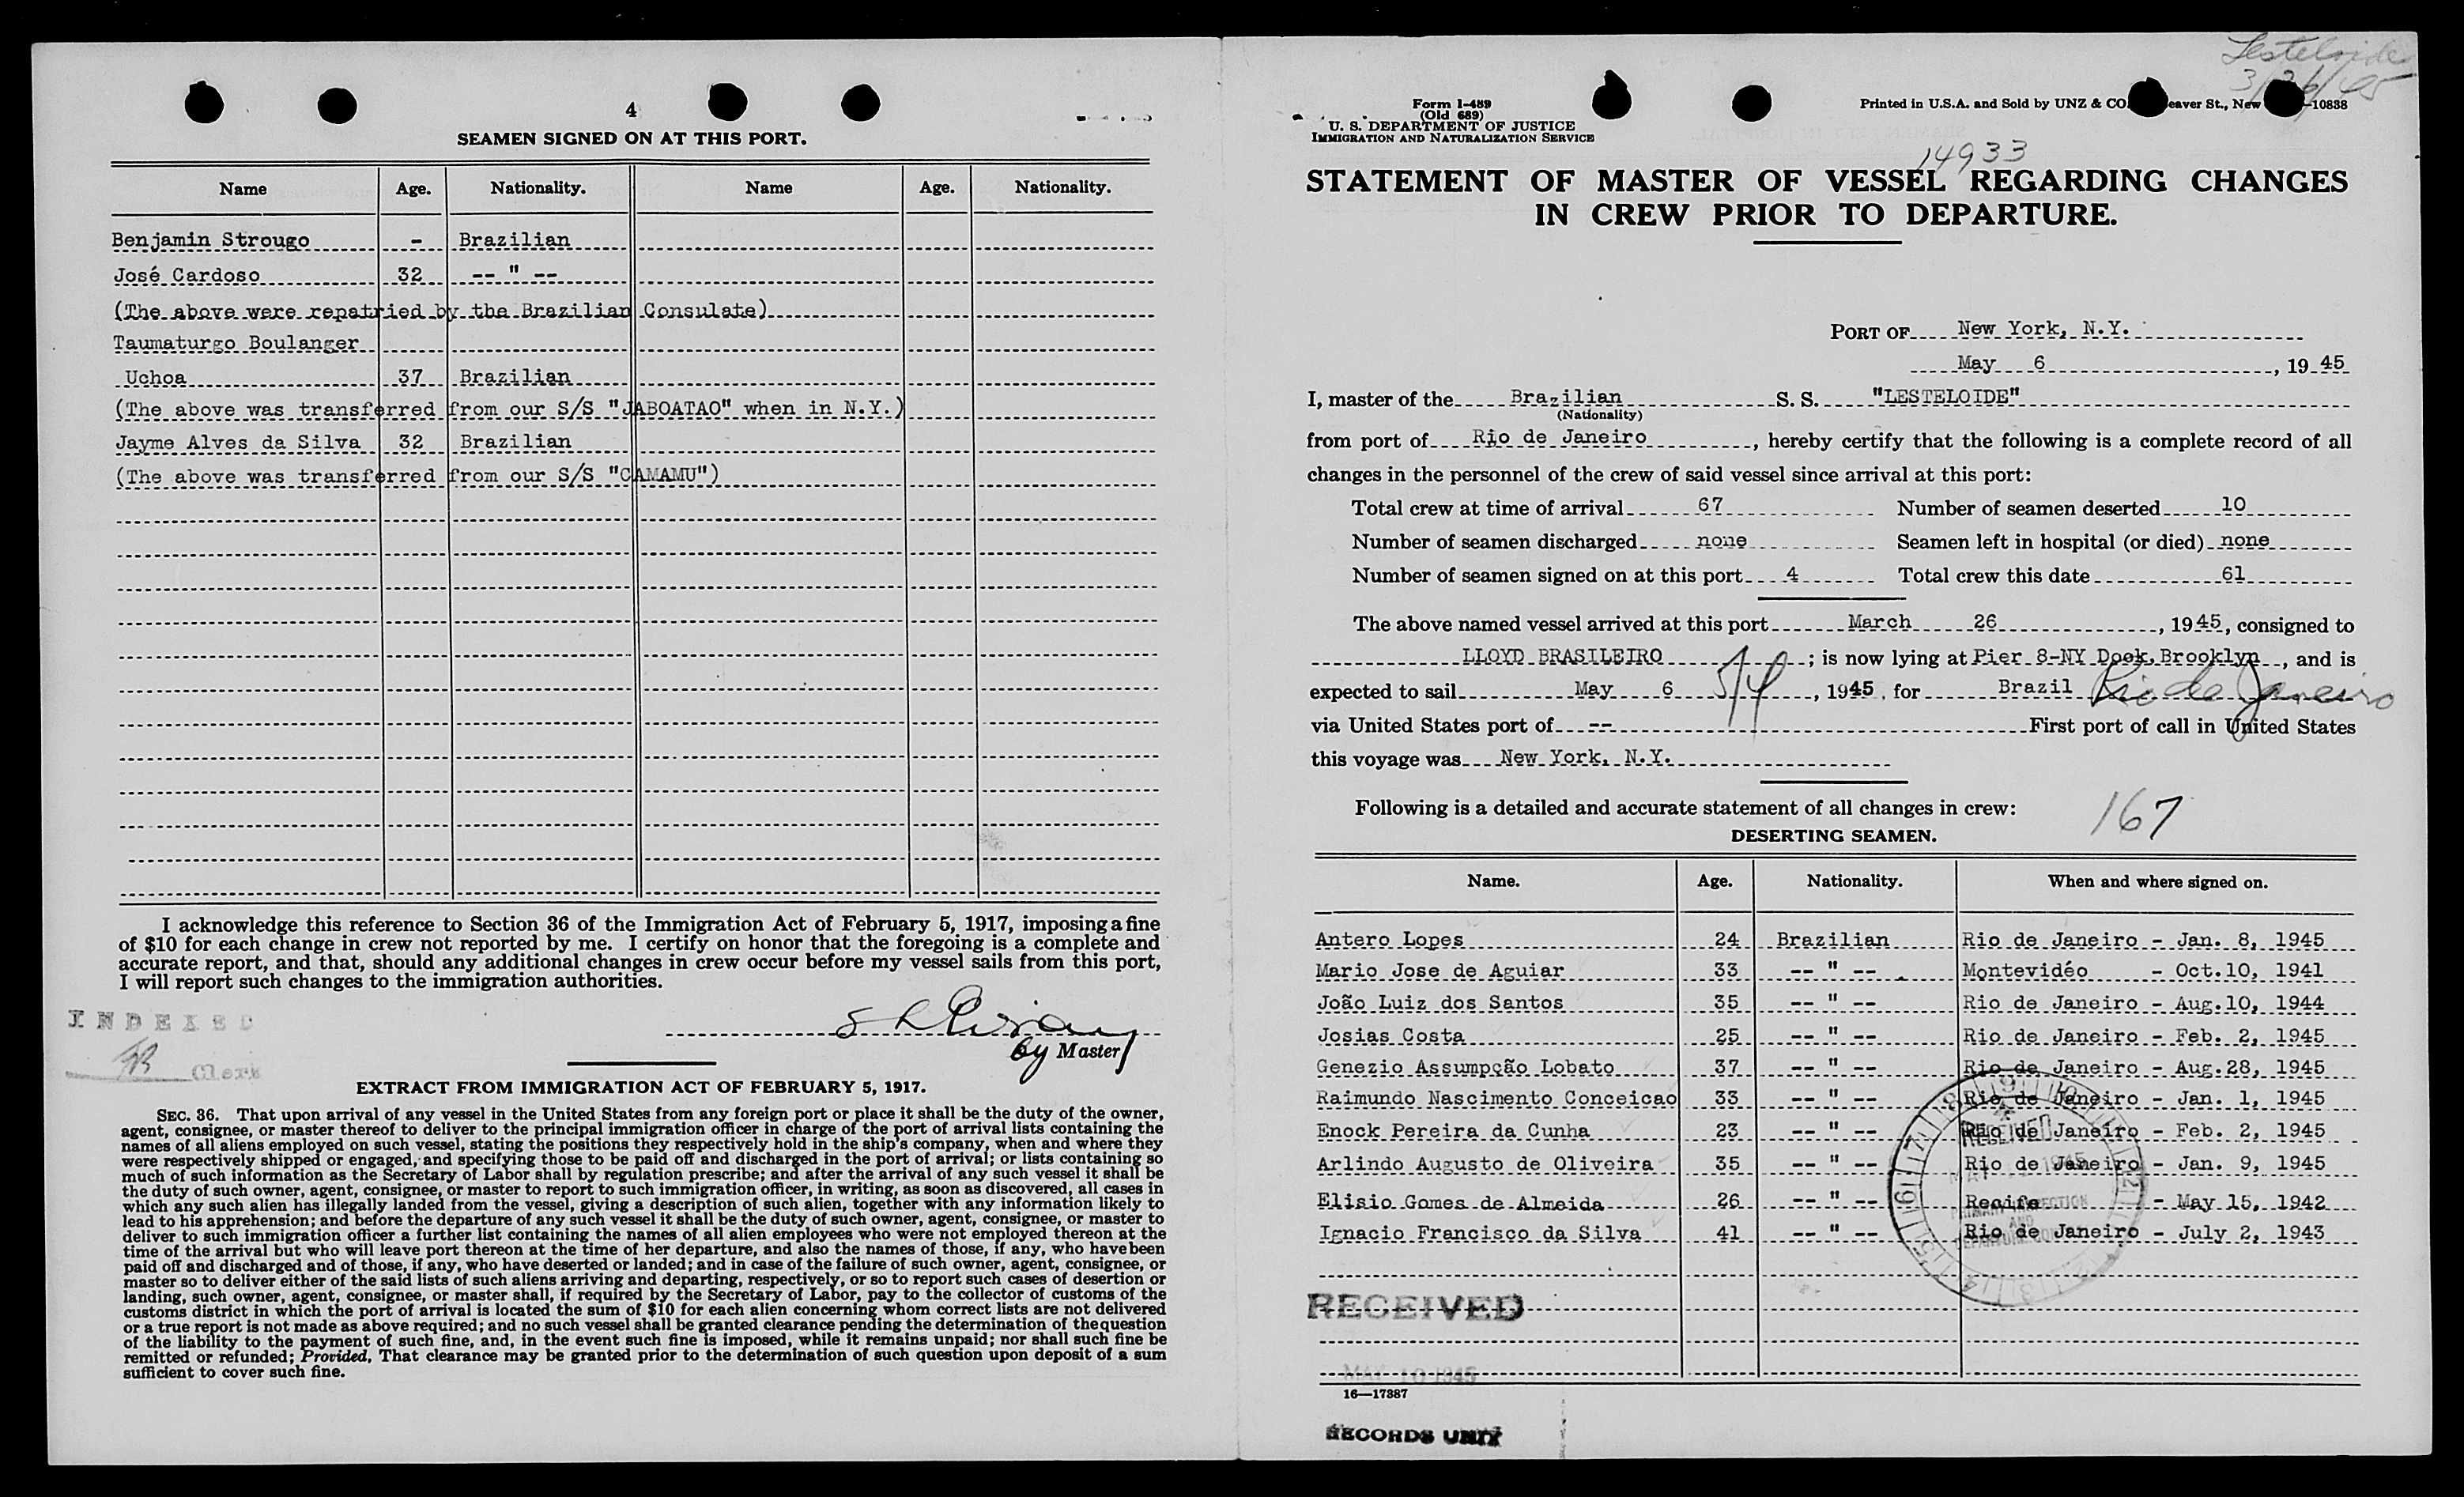 4
SEAMEN SIGNED ON AT THIS PORT.
Name Age. Nationality. Name Age. Nationality.
Benjamin Strougo - Brazilian
José Cardoso 32 -- " --
(The above were repatried by the Brazilian Consulate)
Taumaturgo Boulanger
Uchoa 37 Brazilian
(The above was transferred from our S/S "JABOATAO" when in N.Y.)
Jayme Alves da Silva 32 Brazilian
(The above was transferred from our S/S "CAMAMU")
I acknowledge this reference to Section 36 of the Immigration Act of February 5, 1917, imposing a fine
of $10 for each change in crew not reported by me. I certify on honor that the foregoing is a complete and
accurate report, and that, should any additional changes in crew occur before my vessel sails from this port,
I will report such changes to the immigration authorities.
INDEXED
by Master
Clerk
EXTRACT FROM IMMIGRATION ACT OF FEBRUARY 5, 1917.
SEC. 36. That upon arrival of any vessel in the United States from any foreign port or place it shall be the duty of the owner,
agent, consignee, or master thereof to deliver to the principal immigration officer in charge of the port of arrival lists containing the
names of all aliens employed on such vessel, stating the positions they respectively hold in the ship's company, when and where they
were respectively shipped or engaged, and specifying those to be paid off and discharged in the port of arrival; or lists containing so
much of such information as the Secretary of Labor shall by regulation prescribe; and after the arrival of any such vessel it shall be
the duty of such owner, agent, consignee, or master to report to such immigration officer, in writing, as soon as discovered, all cases in
which any such alien has illegally landed from the vessel, giving a description of such alien, together with any information likely to
lead to his apprehension; and before the departure of any such vessel it shall be the duty of such owner, agent, consignee, or master to
deliver to such immigration officer a further list containing the names of all alien employees who were not employed thereon at the
time of the arrival but who will leave port thereon at the time of her departure, and also the names of those, if any, who have been
paid off and discharged and of those, if any, who have deserted or landed; and in case of the failure of such owner, agent, consignee, or
master so to deliver either of the said lists of such aliens arriving and departing, respectively, or so to report such cases of desertion or
landing, such owner, agent, consignee, or master shall, if required by the Secretary of Labor, pay to the collector of customs of the
customs district in which the port of arrival is located the sum of $10 for each alien concerning whom correct lists are not delivered
or a true report is not made as above required; and no such vessel shall be granted clearance pending the determination of the question
of the liability to the payment of such fine, and, in the event such fine is imposed, while it remains unpaid; nor shall such fine be
remitted or refunded; Provided, That clearance may be granted prior to the determination of such question upon deposit of a sum
sufficient to cover such fine.
Lesteloide
3/26/45
Form I-489
(Old 689)
U. S. DEPARTMENT OF JUSTICE
IMMIGRATION AND NATURALIZATION SERVICE
Printed in U.S.A. and Sold by UNZ & CO. eaver St., New -10838
14933
STATEMENT OF MASTER OF VESSEL REGARDING CHANGES
IN CREW PRIOR TO DEPARTURE.
PORT OF New York, N.Y.
May 6, 1945
I, master of the Brazilian S. S. "LESTELOIDE"
(Nationality)
from port of Rio de Janeiro, hereby certify that the following is a complete record of all
changes in the personnel of the crew of said vessel since arrival at this port:
Total crew at time of arrival 67 Number of seamen deserted 10
Number of seamen discharged none Seamen left in hospital (or died) none
Number of seamen signed on at this port 4 Total crew this date 61
The above named vessel arrived at this port March 26, 1945, consigned to
LLOYD BRASILEIRO; is now lying at Pier 8-NY Dock, Brooklyn, and is
expected to sail May 6 5/4, 1945, for Brazil Rio de Janeiro
via United States port of -- First port of call in United States
this voyage was New York, N.Y.
Following is a detailed and accurate statement of all changes in crew:
167
DESERTING SEAMEN.
Name. Age. Nationality. When and where signed on.
Antero Lopes 24 Brazilian Rio de Janeiro - Jan. 8, 1945
Mario Jose de Aguiar 33 -- " -- Montevidéo - Oct.10, 1941
João Luiz dos Santos 35 -- " -- Rio de Janeiro - Aug.10, 1944
Josias Costa 25 -- " -- Rio de Janeiro - Feb. 2, 1945
Genezio Assumpção Lobato 37 -- " -- Rio de Janeiro - Aug.28, 1945
Raimundo Nascimento Conceicao 33 -- " -- Rio de Janeiro - Jan. 1, 1945
Enock Pereira da Cunha 23 -- " -- Rio de Janeiro - Feb. 2, 1945
Arlindo Augusto de Oliveira 35 -- " -- Rio de Janeiro - Jan. 9, 1945
Elisio Gomes de Almeida 26 -- " -- Recife - May 15, 1942
Ignacio Francisco da Silva 41 -- " -- Rio de Janeiro - July 2, 1943
RECEIVED
MAY 10 1945
16—17387
RECORDS UNIT